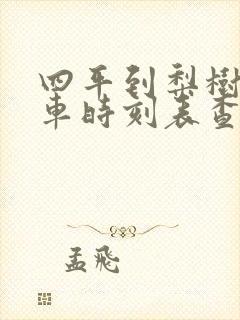 四平到梨樹
車時刻表查
孟飛